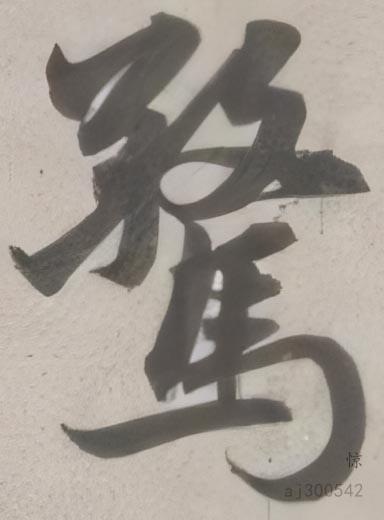 驚
惊
aj300542